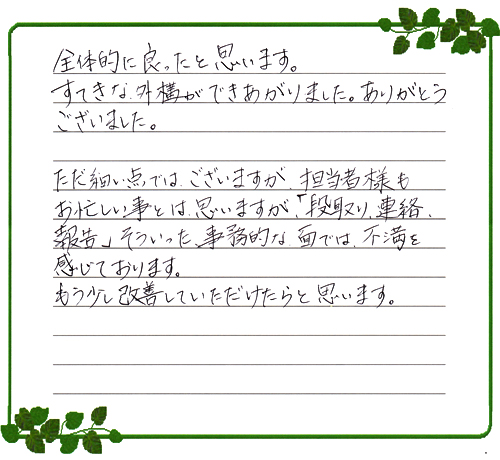 全体的に良ったと思います。
すてきな外構ができあがりました。ありがとう
ございました。
ただ細い点ではございますが、担当者様も
お忙しい事とは思いますが、「段取り、連絡、
報告」そういった、事務的な面では、不満を
感じております。
もう少し改善していただけたらと思います。